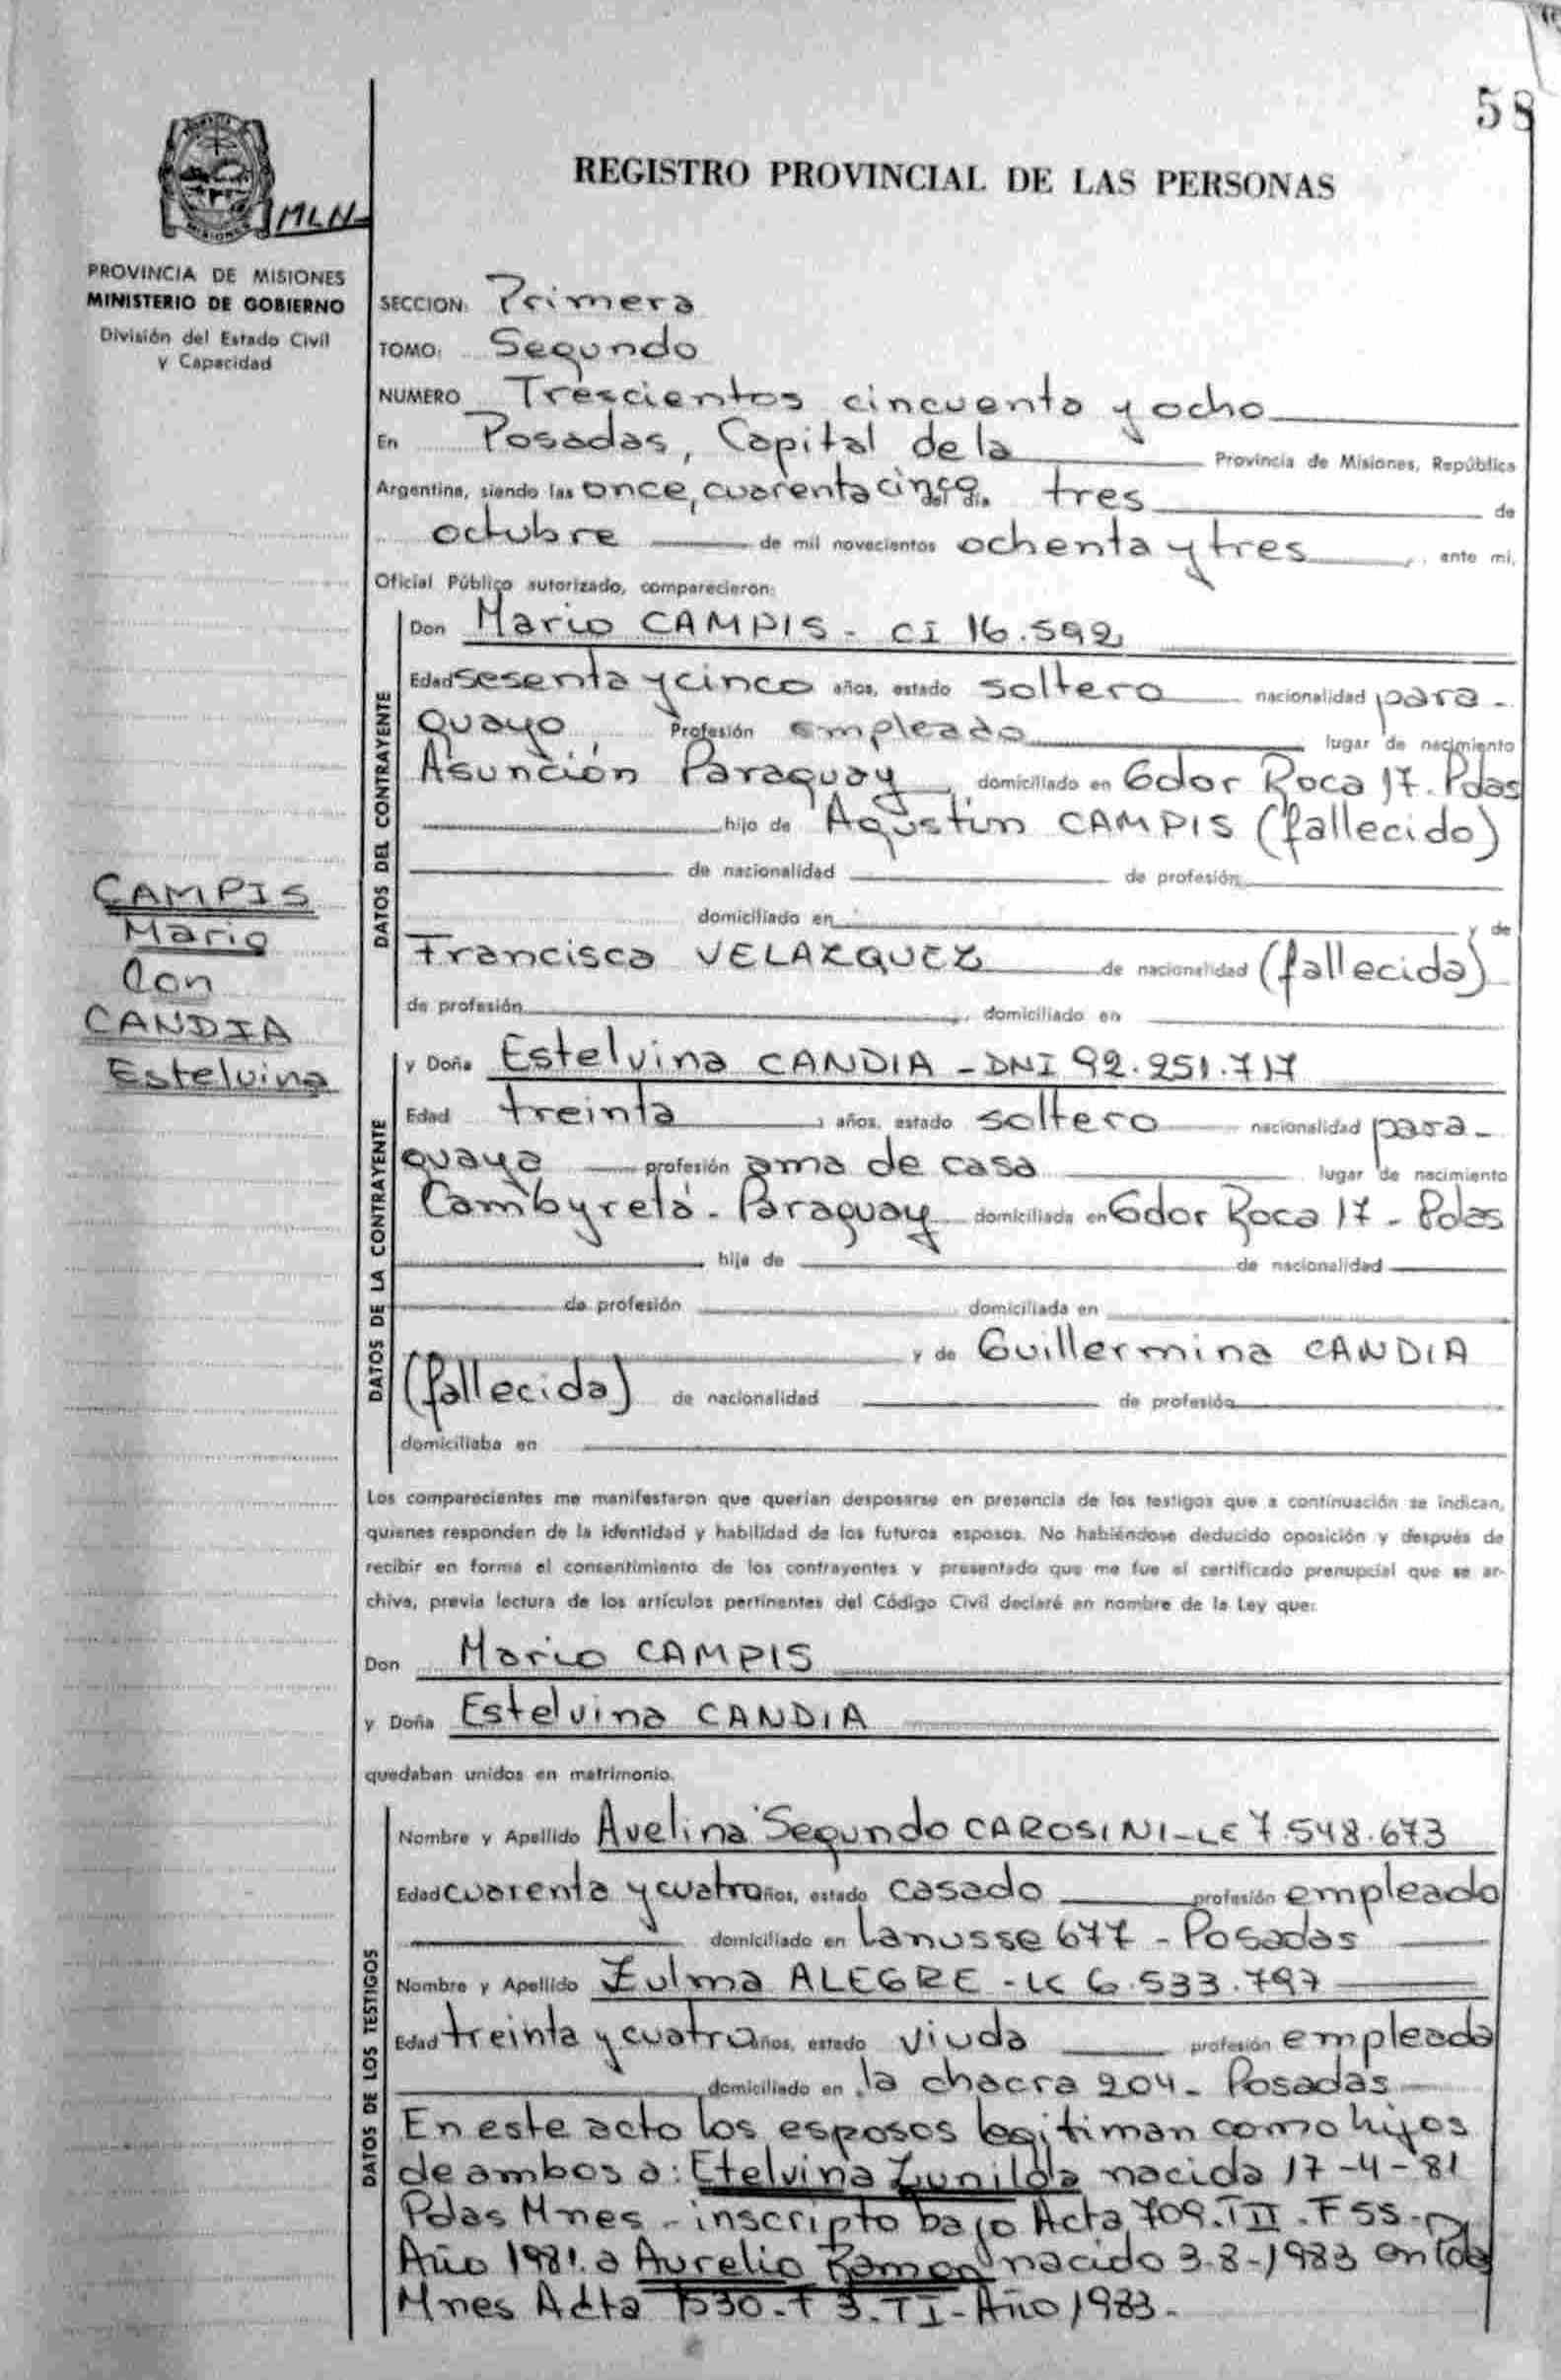 58
REGISTRO PROVINCIAL DE LAS PERSONAS
MISIONES
MLN
PROVINCIA DE MISIONES
MINISTERIO DE GOBIERNO
División del Estado Civil
y Capacidad
SECCION: Primera
TOMO: Segundo
NUMERO Trescientos cincuenta y ocho
En Posadas, Capital de la Provincia de Misiones, República
Argentina, siendo las once, cuarenta cinco del día tres de
octubre de mil novecientos ochenta y tres, ante mi,
Oficial Público autorizado, comparecieron:
DATOS DEL CONTRAYENTE
Don Mario CAMPIS - CI 16.592
Edad sesenta y cinco años, estado soltero nacionalidad para-
guayo, Profesión empleado lugar de nacimiento
Asunción Paraguay, domiciliado en Gdor Roca 17. Pdas
hijo de Agustin CAMPIS (fallecido)
de nacionalidad de profesión
domiciliado en y de
Francisca VELAZQUEZ de nacionalidad (fallecida)
de profesión, domiciliado en
CAMPIS
Mario
Con
CANDIA
Estelvina
DATOS DE LA CONTRAYENTE
y Doña Estelvina CANDIA - DNI 92.251.717
Edad treinta años, estado soltero nacionalidad para-
guaya profesión ama de casa lugar de nacimiento
Cambyretá - Paraguay domiciliada en Gdor Roca 17 - Pdas
hija de de nacionalidad
de profesión domiciliada en
y de Guillermina CANDIA
(fallecida) de nacionalidad de profesión
domiciliaba en
Los comparecientes me manifestaron que querían desposarse en presencia de los testigos que a continuación se indican,
quienes responden de la identidad y habilidad de los futuros esposos. No habiéndose deducido oposición y después de
recibir en forma el consentimiento de los contrayentes y presentado que me fue el certificado prenupcial que se ar-
chiva, previa lectura de los artículos pertinentes del Código Civil declaré en nombre de la Ley que:
Don Mario CAMPIS
y Doña Estelvina CANDIA
quedaban unidos en matrimonio.
DATOS DE LOS TESTIGOS
Nombre y Apellido Avelina Segundo CAROSINI - LE 7.548.673
Edad cuarenta y cuatro años, estado casado profesión empleado
domiciliado en Lanusse 677 - Posadas
Nombre y Apellido Zulma ALEGRE - LC 6.533.797
Edad treinta y cuatro años, estado viuda profesión empleada
domiciliado en la chacra 204 - Posadas
En este acto los esposos legitiman como hijos
de ambos a: Etelvina Zunilda nacida 17-4-81
Pdas Mnes - inscripto bajo Acta 709. T II. F 55 -
Año 1981. a Aurelio Ramon nacido 3-8-1983 en Pdas
Mnes Acta 1530. F 3. T I - Año 1983 -